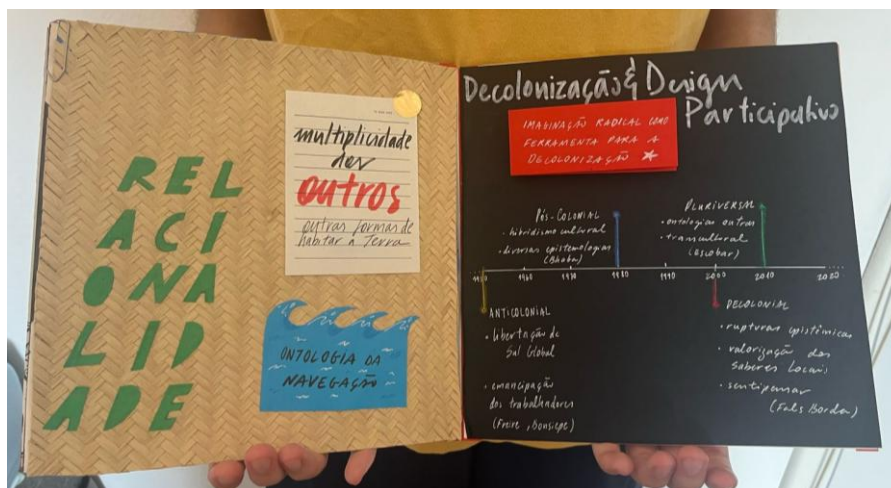 REL
ACI
ONA
LID
ADE
multiplicidade
dos
outros
outras formas de
habitar a Terra
ONTOLOGIA DA
NAVEGAÇÃO
Decolonização & Design
Participativo
IMAGINAÇÃO RADICAL COMO
FERRAMENTA PARA A
DECOLONIZAÇÃO
PÓS-COLONIAL
• hibridismo cultural
• diversas epistemologias
(Bhabha)
PLURIVERSAL
• ontologias outras
• transcultural
(Escobar)
1950 1960 1970 1980 1990 2000 2010 2020
ANTICOLONIAL
• libertação do
Sul Global
• emancipação
dos trabalhadores
(Freire, Bonsiepe)
DECOLONIAL
• rupturas epistêmicas
• valorização dos
saberes locais
• sentipensar
(Fals Borda)